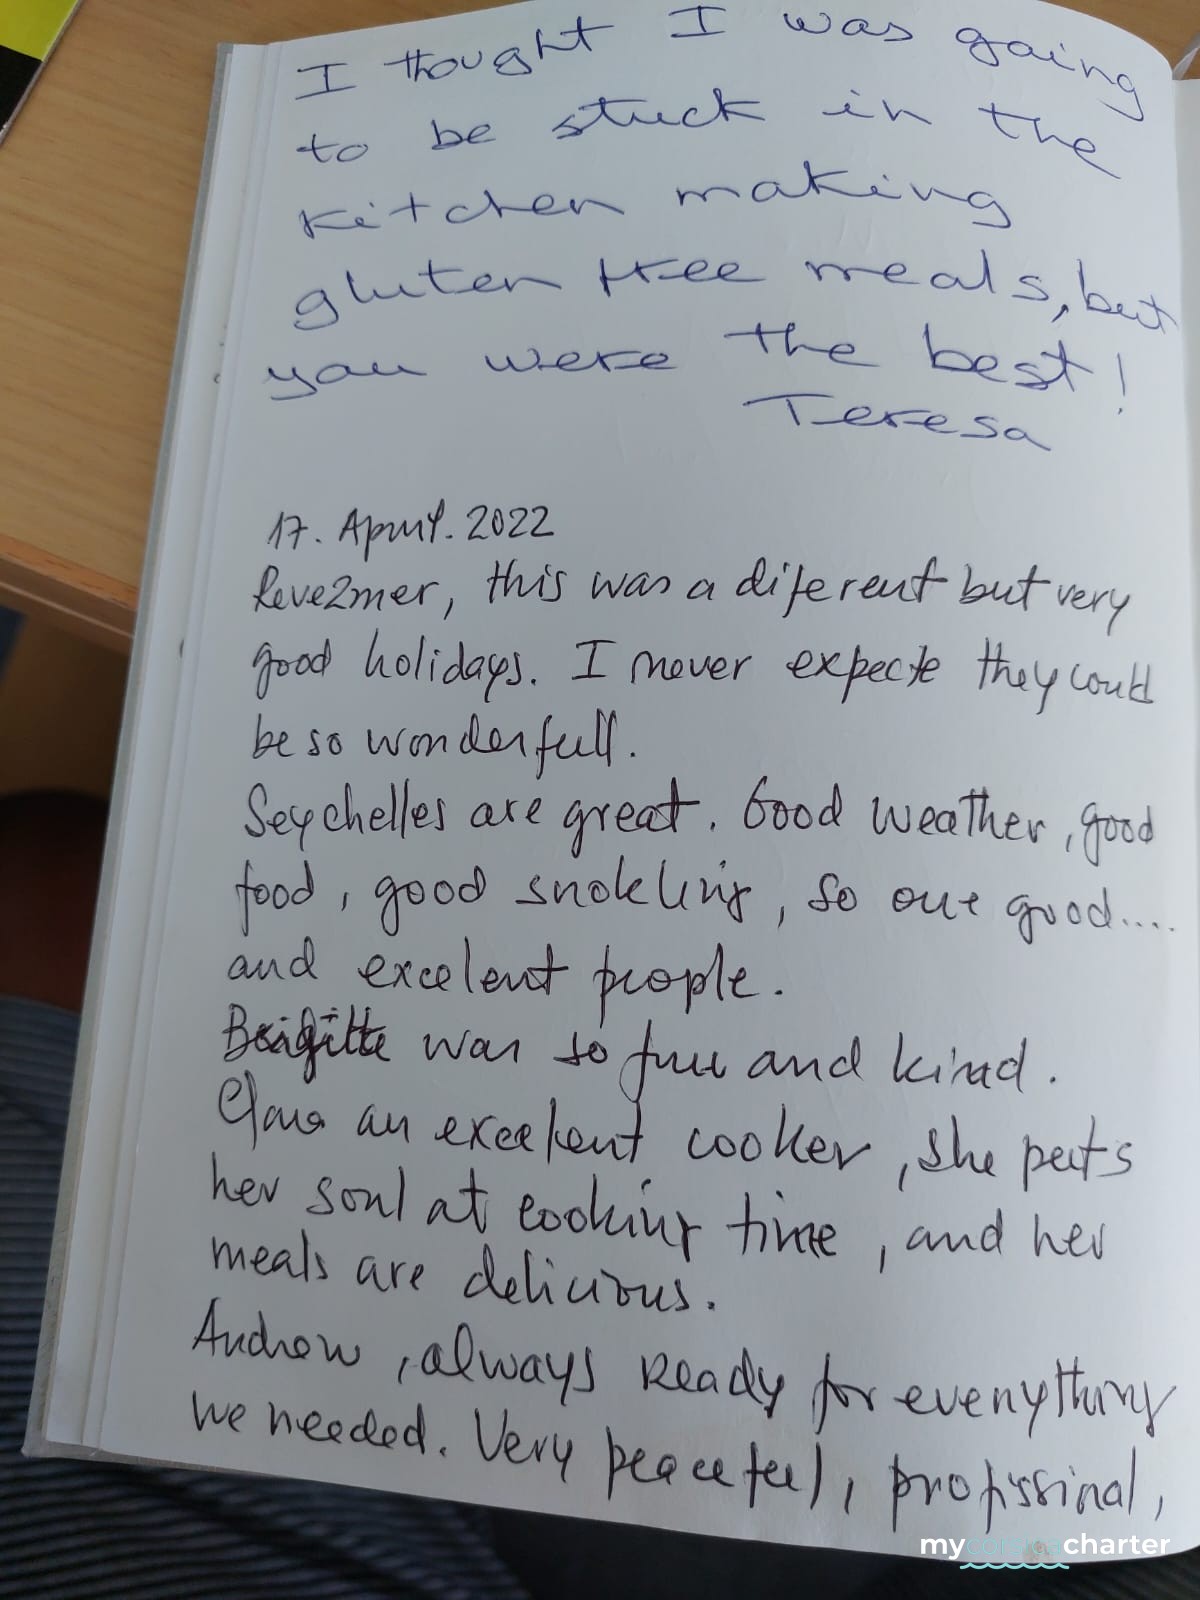 I thought I was going
to be stuck in the
kitchen making
gluten free meals, but
you were the best!
Teresa
17. April. 2022
Reve2mer, this was a diferent but very
good holidays. I never expecte they could
be so wonderfull.
Seychelles are great. Good weather, good
food, good snokling, so one good....
and excelent people.
Brigitte was so fun and kind.
an excelent cooker, she puts
her soul at cooking time, and her
meals are delicious.
Andrew, always ready for everything
we needed. Very peacefull, profissinal,
mycorsicacharter